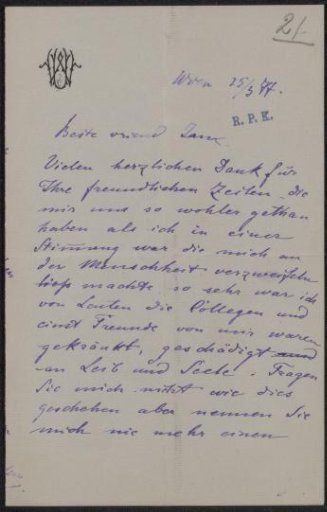 2/-
Wien 25/3 77.
R. P. K.
Beste vriend Jan
Vielen herzlichen Dank für
Ihre freundlichen Zeilen die
mir um so wohler gethan
haben als ich in einer
Stimmung war die mich an
der Menschheit verzweifeln
ließ machte, so sehr war ich
von Leuten die Collegen und
einst Freunde von mir waren
gekränkt, geschädigt
an Leib und Seele. Fragen
Sie mich nicht wie dies
geschehen aber nennen Sie
mich nie mehr einen